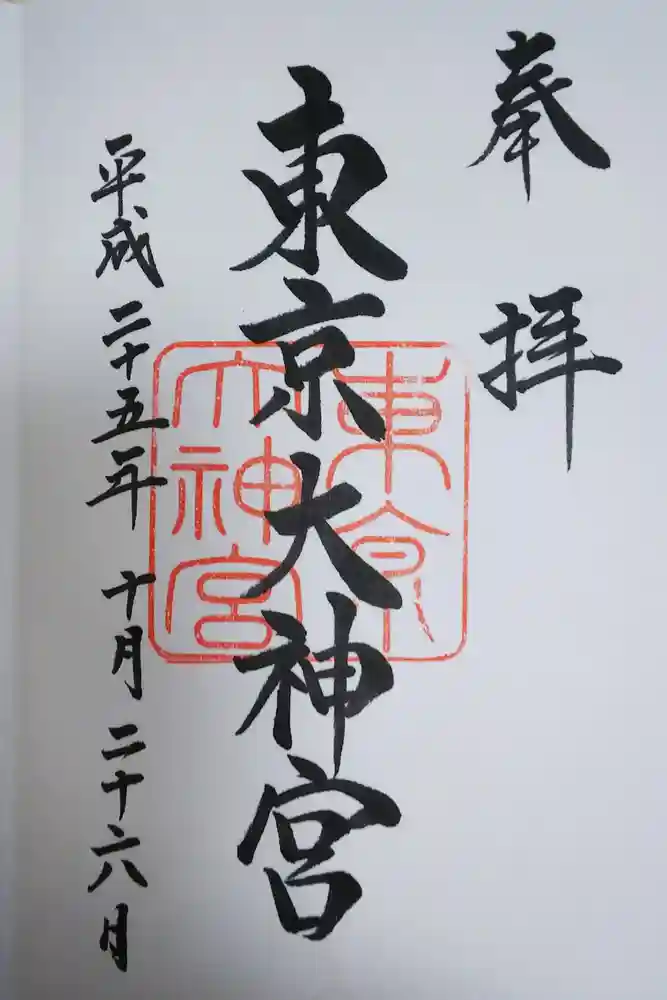 奉拝
東京大神宮
東京大神宮
平成二十五年十月二十六日